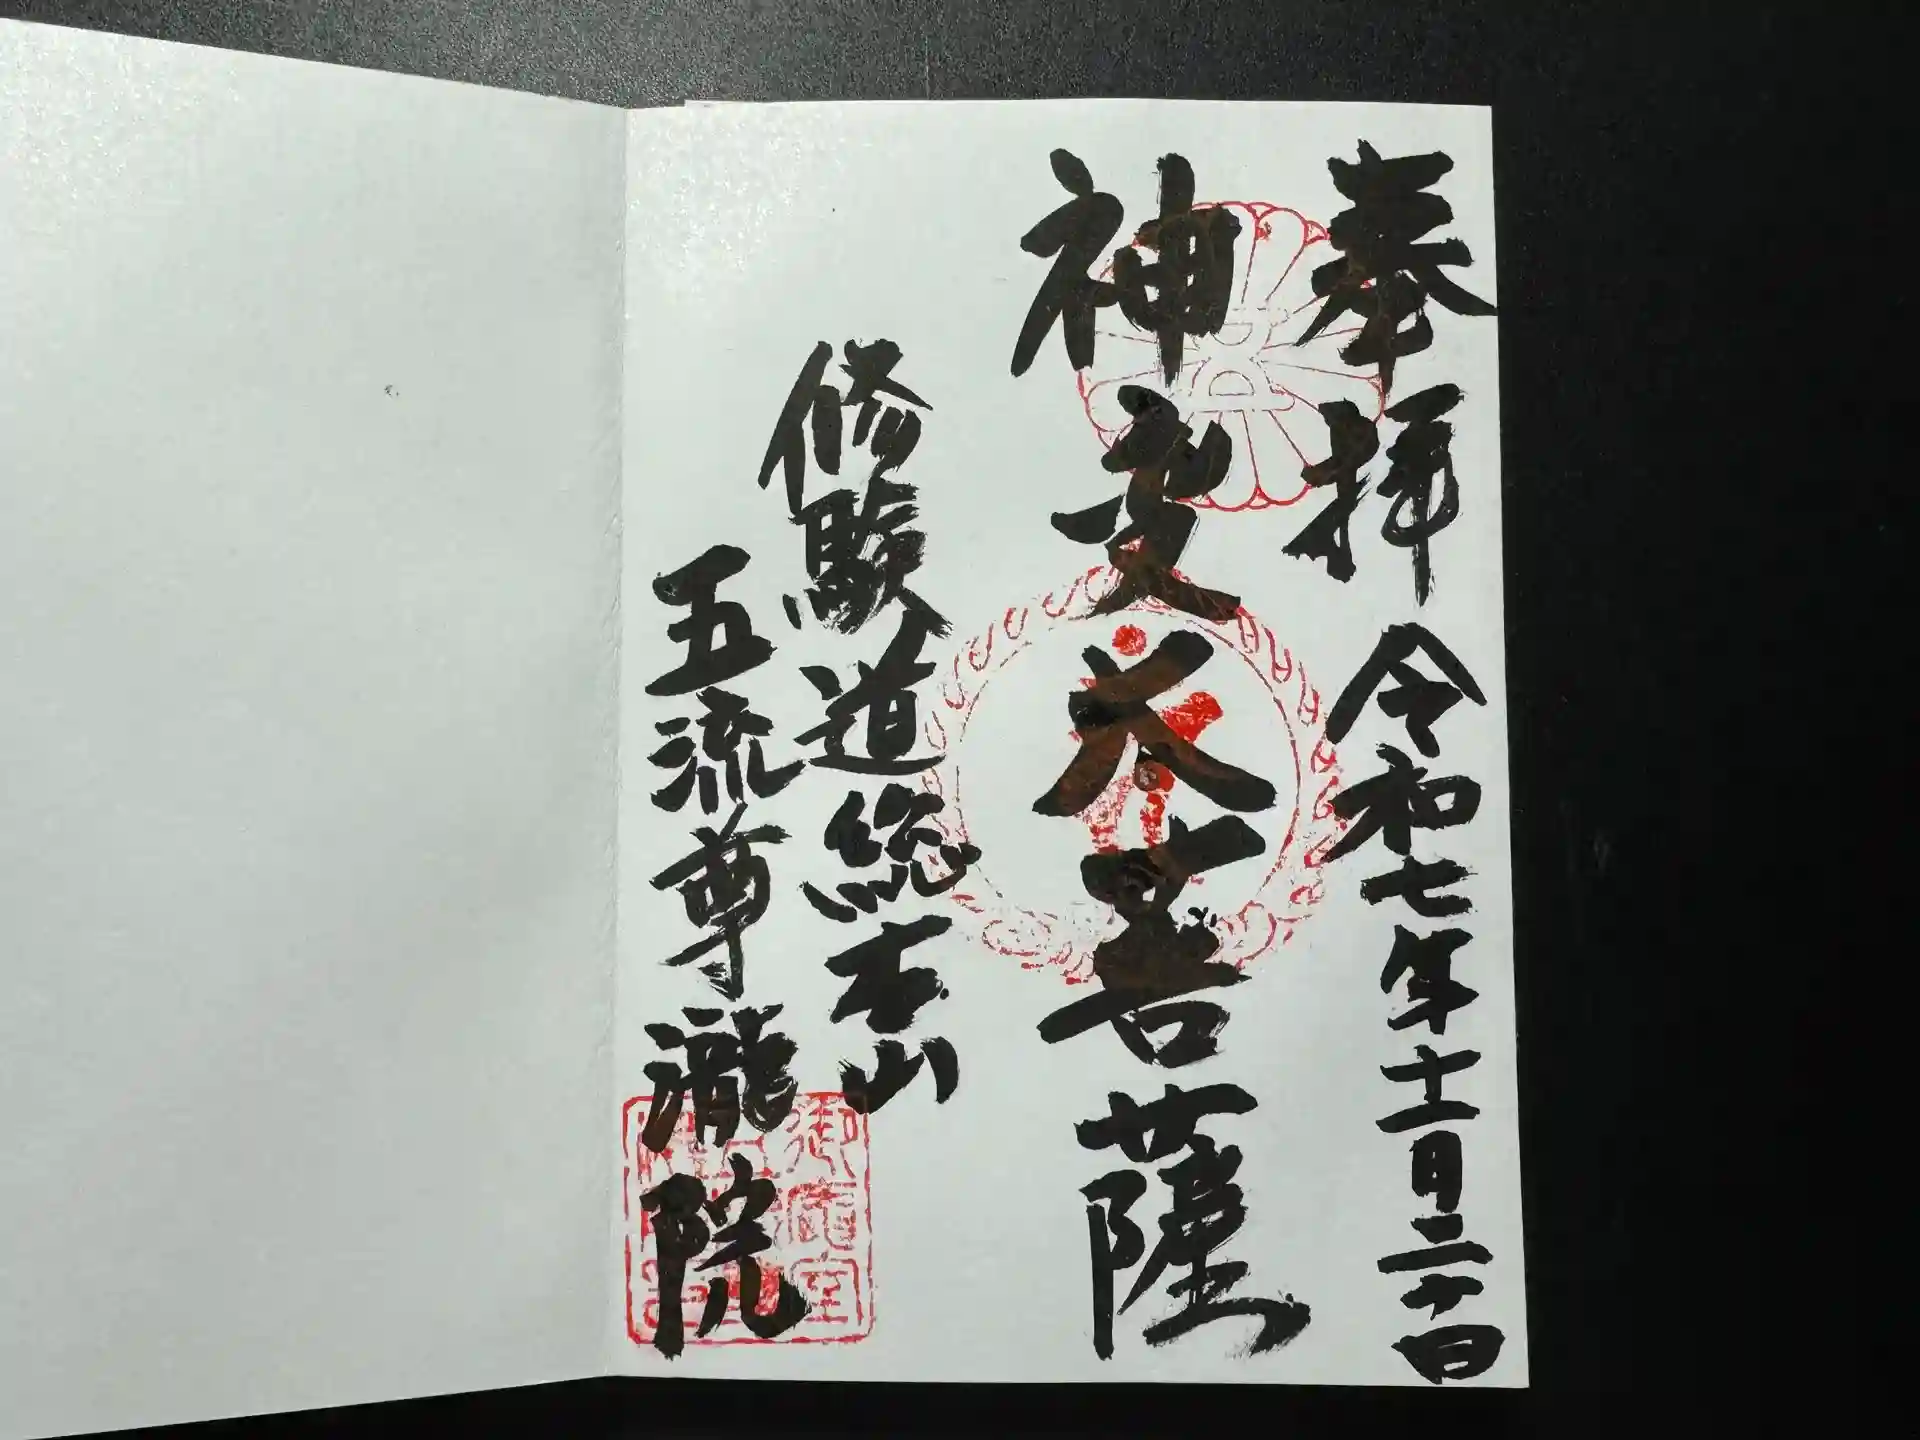 奉拝 令和七年十一月二六日
神変大菩薩
修験道総本山
五流尊瀧院